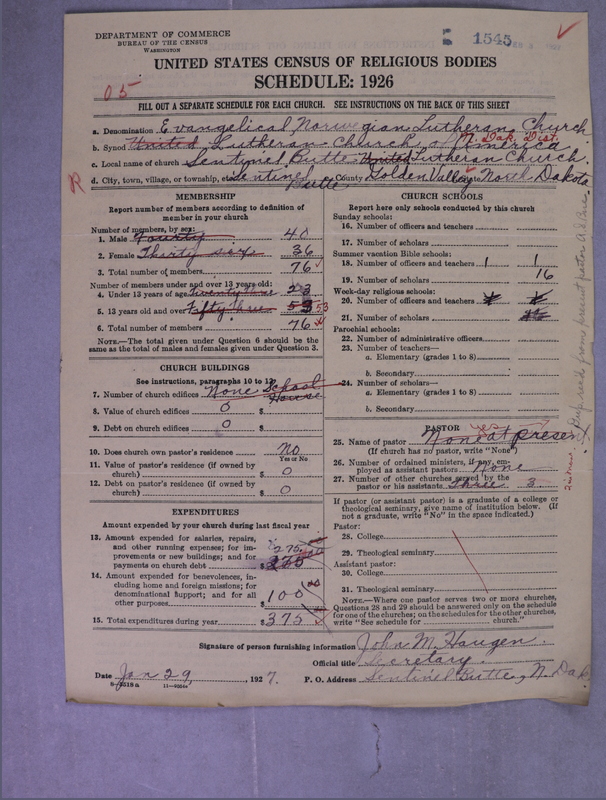 DEPARTMENT OF COMMERCE
BUREAU OF THE CENSUS
WASHINGTON
1545
UNITED STATES CENSUS OF RELIGIOUS BODIES
SCHEDULE: 1926
05
FILL OUT A SEPARATE SCHEDULE FOR EACH CHURCH. SEE INSTRUCTIONS ON THE BACK OF THIS SHEET
a. Denomination Evangelical Norwegian Lutheran Church
N. Dak. Dist.
b. Synod United Lutheran Church of America
c. Local name of church Sentinel Butte United Lutheran Church.
R
d. City, town, village, or township, etc. Sentinel Butte County Golden Valley North Dakota
MEMBERSHIP
Report number of members according to definition of member in your church
Number of members, by sex:
1. Male Fourty 40
2. Female Thirty six 36
3. Total number of members 76
Number of members under and over 13 years old:
4. Under 13 years of age Twenty three 23
5. 13 years old and over Fifty Three 53 53
6. Total number of members 76
NOTE.—The total given under Question 6 should be the same as the total of males and females given under Question 3.
CHURCH BUILDINGS
See instructions, paragraphs 10 to 12
7. Number of church edifices None School House
8. Value of church edifices 0 $
9. Debt on church edifices 0 $
10. Does church own pastor's residence No
Yes or No
11. Value of pastor's residence (if owned by church) $ 0
12. Debt on pastor's residence (if owned by church) $ 0
EXPENDITURES
Amount expended by your church during last fiscal year
13. Amount expended for salaries, repairs, and other running expenses; for improvements or new buildings; and for payments on church debt $ 275
14. Amount expended for benevolences, including home and foreign missions; for denominational support; and for all other purposes $ 100
15. Total expenditures during year $ 375
CHURCH SCHOOLS
Report here only schools conducted by this church
Sunday schools:
16. Number of officers and teachers
17. Number of scholars
Summer vacation Bible schools:
18. Number of officers and teachers 1 1
19. Number of scholars 16
Week-day religious schools:
20. Number of officers and teachers
21. Number of scholars
Parochial schools:
22. Number of administrative officers
23. Number of teachers—
a. Elementary (grades 1 to 8)
b. Secondary
24. Number of scholars—
a. Elementary (grades 1 to 8)
b. Secondary
PASTOR
yes
25. Name of pastor None at present
(If church has no pastor, write "None")
26. Number of ordained ministers, if any, employed as assistant pastors None
27. Number of other churches served by the pastor or his assistants Three 3
If pastor (or assistant pastor) is a graduate of a college or theological seminary, give name of institution below. (If not a graduate, write "No" in the space indicated.)
Pastor:
28. College
29. Theological seminary
Assistant pastor:
30. College
31. Theological seminary
NOTE.—Where one pastor serves two or more churches, Questions 28 and 29 should be answered only on the schedule for one of the churches; on the schedules for the other churches, write "See schedule for church."
Signature of person furnishing information John M. Haugen
Official title Secretary
Date Jan 29, 1927.
P. O. Address Sentinel Butte, N. Dak.